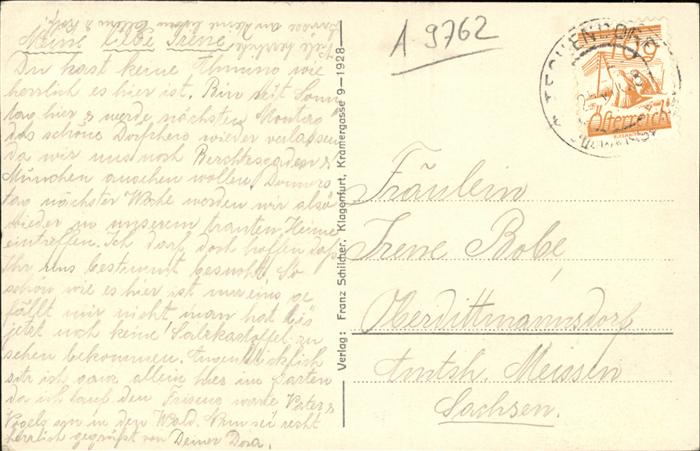 Meine liebe Irene
Du hast keine Ahnung wie
herrlich es hier ist. Bin seit Sonn
tag hier & werde nächsten Montag
das schöne Dorfheim wieder verlassen
da wir uns noch Berchtesgaden &
München ansehen wollen. Donners
tag nächster Woche werden wir also
wieder in unserem trauten Heime
eintreffen. Ich darf doch hoffen daß
Ihr uns bestimmt besucht. So
schön wie es hier ist nur eins ge
fällt mir nicht man hat bis
jetzt noch keine Salzkartoffel zu
sehen bekommen. Augenblicklich
sitz ich ganz allein hier im Garten
da ich auf den warte Vater &
Vogels sind in den Wald. Nun sei recht
herzlich gegrüßt von Deiner Dora.
Viele herzliche
Grüsse an Deine lieben Eltern &
Verlag: Franz Schilcher, Klagenfurt, Kramergasse 9-1928
A 9762
TECHENDORF
60
Österreich
Fräulein
Irene Bobe,
Oberdittmannsdorf
Amtsh. Meissen
Sachsen.